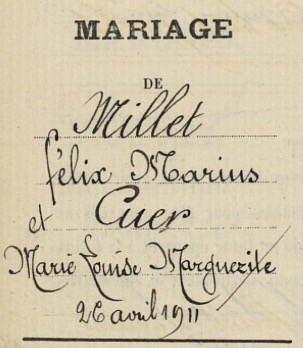 MARIAGE
DE
Millet
félix Marius
et Cuer
Marie Louise Marguerite
26 avril 1911